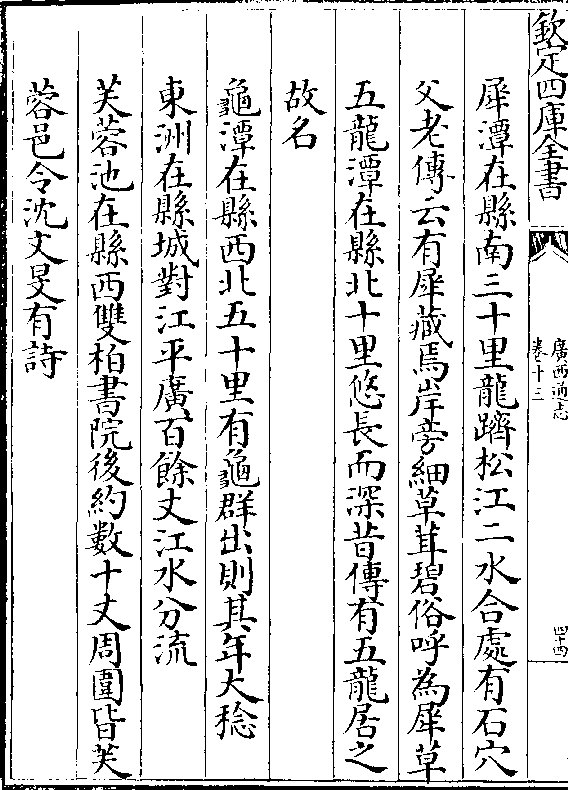 欽定四庫全書
廣西通志
卷十三
四十四
犀潭在縣南三十里龍躋松江二水合處有石穴
父老傳云有犀藏焉岸旁細草茸碧俗呼為犀草
五龍潭在縣北十里悠長而深昔傳有五龍居之
故名
龜潭在縣西北五十里有龜群出則其年大稔
東洲在縣城對江平廣百餘丈江水分流
芙蓉池在縣西雙柏書院後約數十丈周圍皆芙
蓉邑令沈文旻有詩